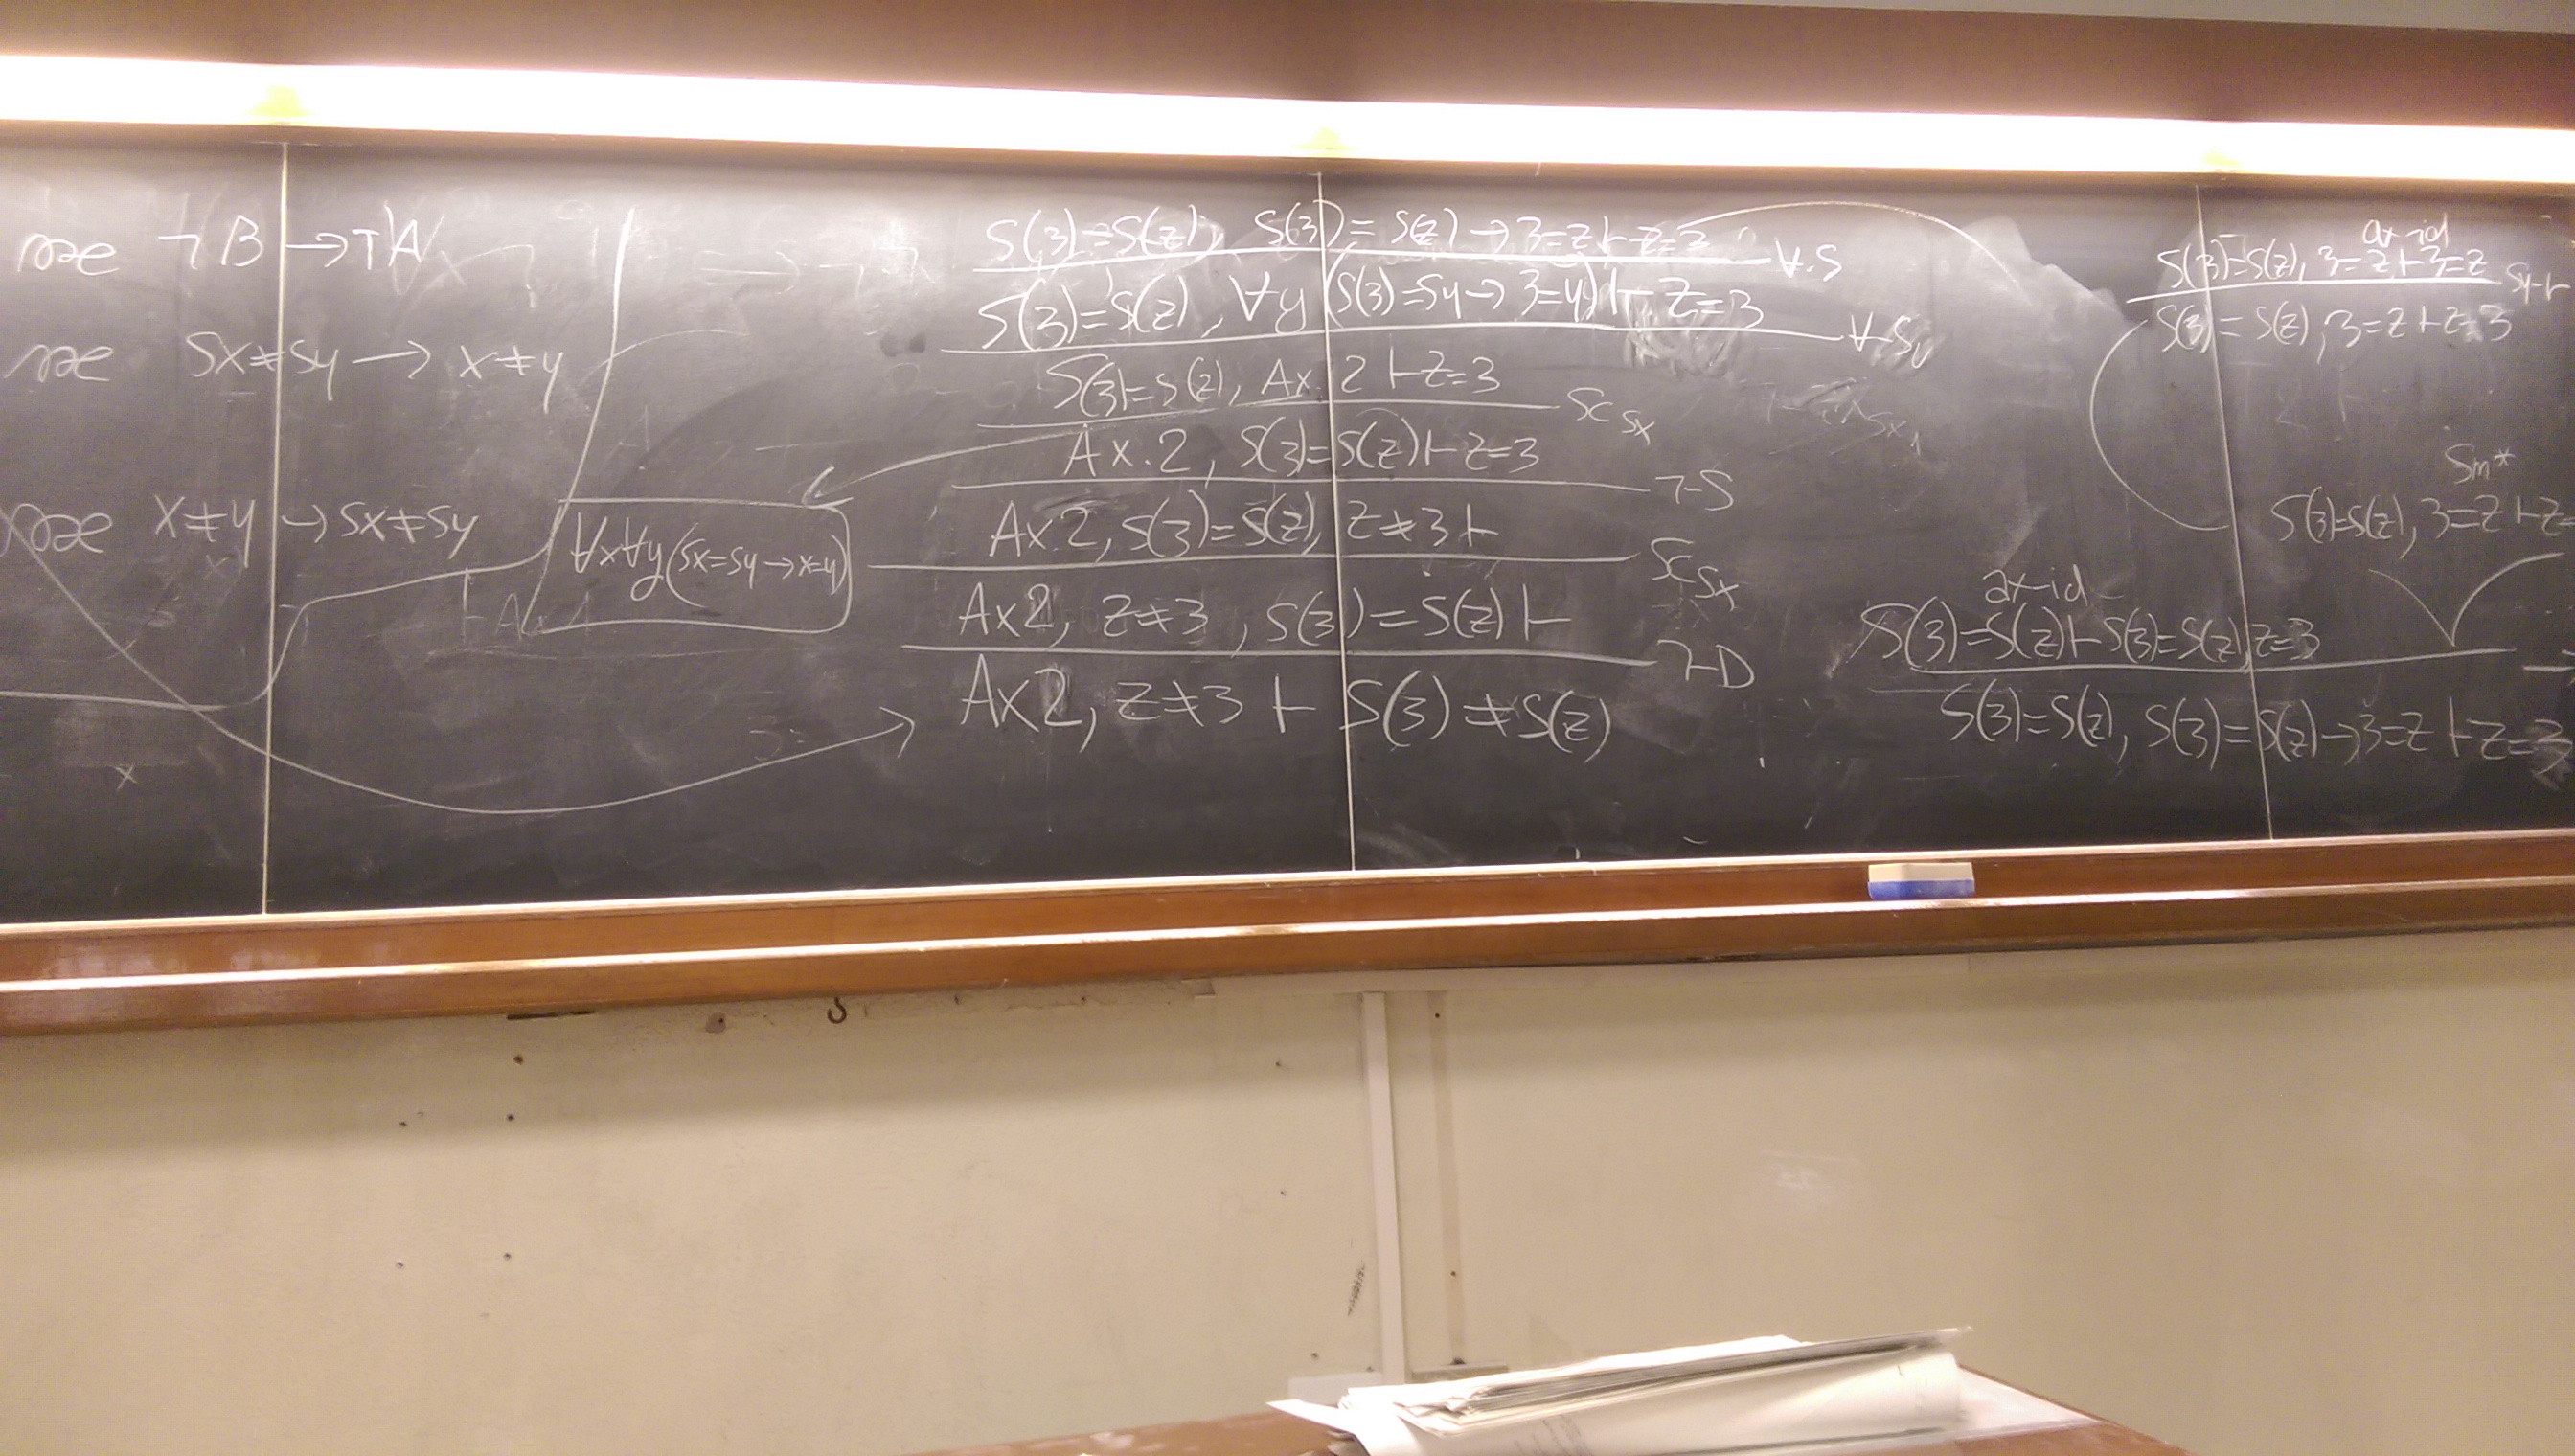 ¬B → ¬A
Sx≠Sy → x≠y
x≠y → Sx≠Sy
∀x∀y(Sx=Sy→x=y)
S(3)=S(z), S(3)=S(z)→3=z ⊢ z=3
∀-S
S(3)=S(z), ∀y(S(3)=Sy→3=y) ⊢ z=3
∀-S
S(3)=S(z), Ax. 2 ⊢ z=3
Sc sx
Ax. 2, S(3)=S(z) ⊢ z=3
¬-S
Ax. 2, S(3)=S(z), z≠3 ⊢
Sc sx
Ax2, z≠3, S(3)=S(z) ⊢
¬-D
Ax2, z≠3 ⊢ S(3)≠S(z)
ax-id
S(3)=S(z), 3=z ⊢ 3=z
S(3)=S(z), 3=z ⊢ z=3
Sm*
S(3)=S(z), 3=z ⊢ z=
ax-id
S(3)=S(z) ⊢ S(3)=S(z), z=3
S(3)=S(z), S(3)=S(z)→3=z ⊢ z=3